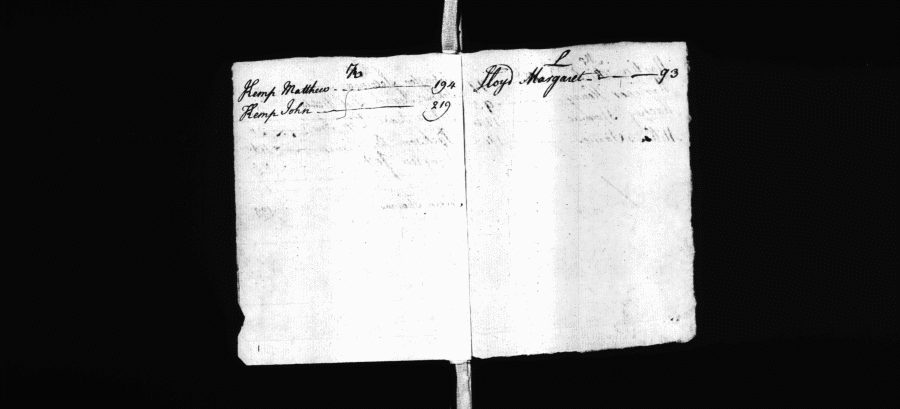 K
Kemp Matthew 194
Kemp John 219
L
Lloyd Margaret 93